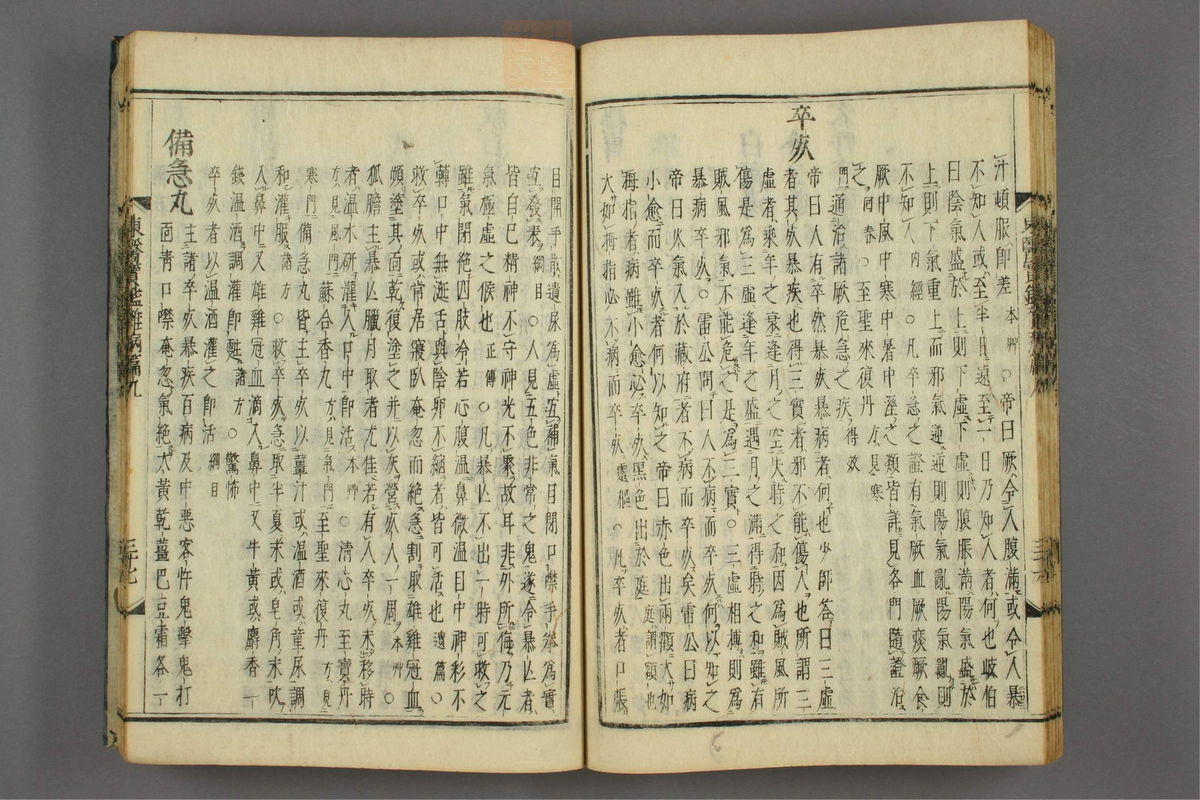 汁頓服卽差 本艸 ○帝曰厥令人腹滿或令人暴
不知人或至半日遠至一日乃知人者何也岐伯
曰陰氣盛於上則下虛下虛則腹脹滿陽氣盛於
上則下氣重上而邪氣逆逆則陽氣亂陽氣亂則
不知人 內經 ○凡卒厥急之證有氣厥血厥痰厥食
厥中風中寒中暑中濕之類皆詳見各門隨證治
之 回春 ○至聖來復丹 方見寒
門 通治諸厥危急之疾 得效
卒死
帝曰人有卒然暴死暴病者何也少師答曰三虛
者其死暴疾也得三實者邪不能傷人也所謂三
虛者乘年之衰逢月之空失時之和因爲賊風所
傷是爲三虛逢年之盛遇月之滿得時之和雖有
賊風邪氣不能危之是爲三實○三虛相搏則爲
暴病卒死○雷公問曰人不病而卒死何以知之
帝曰大氣入於藏府者不病而卒死矣雷公曰病
小愈而卒死者何以知之帝曰赤色出兩顴大如
拇指者病雖小愈必卒死黑色出於庭 庭謂額也
大如拇指必不病而卒死 靈樞 ○凡卒死者口張
目開手散遺尿爲虛宜補氣目閉口噤手拳爲實
宜發表 綱目 ○人見五色非常之鬼遂令暴亡者
皆自己精神不守神光不聚故耳非外所侮乃元
氣極虛之候也 正傳 ○凡暴亡不出一時可救之
雖氣閉絕四肢冷若心腹溫鼻微溫目中神彩不
轉口中無涎舌與陰卵不縮者皆可活也 遺篇 ○
救卒死或常居寢臥奄忽而絕急割取雄雞冠血
頻塗其面乾復塗之并以灰營死人一周 本艸 ○
狐膽主暴亡臘月取者尤佳若有人卒死未移時
者溫水硏灌入口中卽活 本艸 ○淸心丸至寶丹
方見風門 蘇合香丸 方見氣門 至聖來復丹 方見
寒門 備急丸皆主卒死以薑汁或溫酒或童尿調
和灌服 諸方 ○救卒死急取半夏末或皂角末吹
入鼻中○又雄雞冠血滴入鼻中○又牛黃或麝香一
錢溫酒調灌卽甦 諸方 ○驚怖
卒死者以溫酒灌之卽活 綱目
備急丸 主諸卒死暴疾百病及中惡客忤鬼擊鬼打
面靑口噤奄忽氣絕大黃乾薑巴豆霜各一
東醫寶鑑雜病篇九